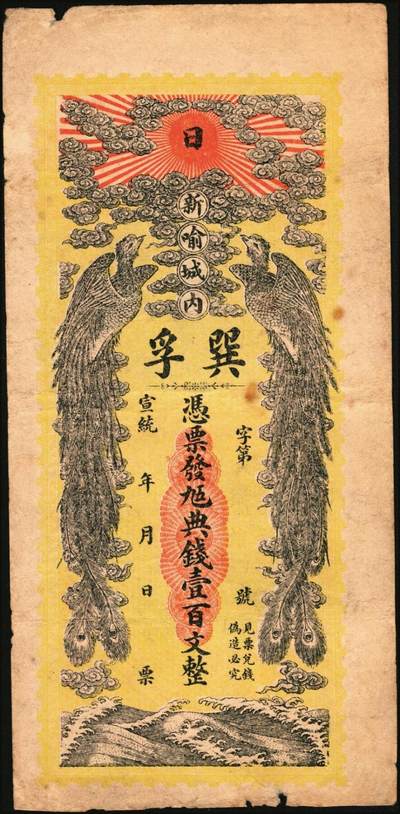 日
新喻城內
巽孚
字第 號
見票兌錢
偽造必究
憑票發典錢壹百文整
宣統 年 月 日 票